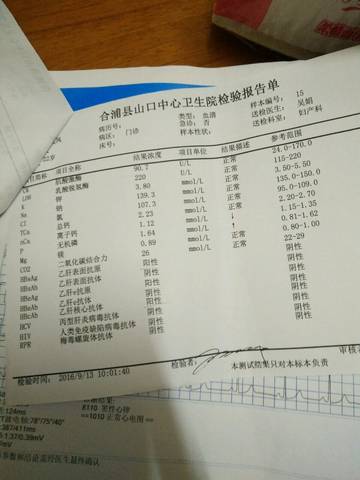 合浦县山口中心卫生院检验报告单
病历号: 类型: 血清 样本编号: 15
病区: 门诊 急诊: 否 送检医生: 吴娟
22岁 床号: 样本性状: 送检科室: 妇产科
项目简称 项目全称 结果浓度 项目单位 结果描述 参考范围
肌酸激酶 90.7 U/L 正常 24.0-170.0
LDH 乳酸脱氢酶 220 U/L 正常 115-220
K 钾 3.80 mmol/L 正常 3.50-5.50
Na 钠 139.3 mmol/L 正常 135.0-150.0
Cl 氯 107.3 mmol/L 正常 95.0-109.0
TCa 总钙 2.23 mmol/L 正常 2.20-2.70
nCa 离子钙 1.12 mmol/L ↓ 1.15-1.35
P 无机磷 1.64 mmol/L ↑ 0.81-1.62
Mg 镁 0.89 mmol/L 正常 0.80-1.00
CO2 二氧化碳结合力 26 mmol/L 正常 22-29
HBsAg 乙肝表面抗原 阴性
HBsAb 乙肝表面抗体 阴性
HBeAg 乙肝e抗原 阴性 阴性
HBeAb 乙肝e抗体 阴性 阴性
HBcAb 乙肝核心抗体 阴性 阴性
HCV 丙型肝炎病毒抗体 阴性 阴性
HIV 人类免疫缺陷病毒抗体 阴性 阴性
RPR 梅毒螺旋体抗体 阴性 阴性
检验者: 审核
检验时间: 2016/9/13 10:01:40 本测试结果只对本标本负责
124ms
电轴:78°/75°/40°
:387/411ms
:1.37/0.39mV
mV
8110 男性心律
==1010 正常心电图==
参数解结论需经医生最终确认